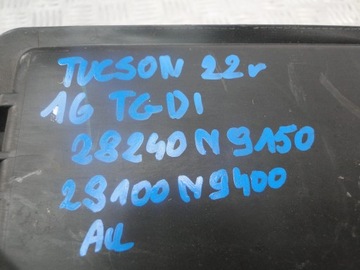 TUCSON 22r
16 TGDI
28240N9150
29100N9400
AU